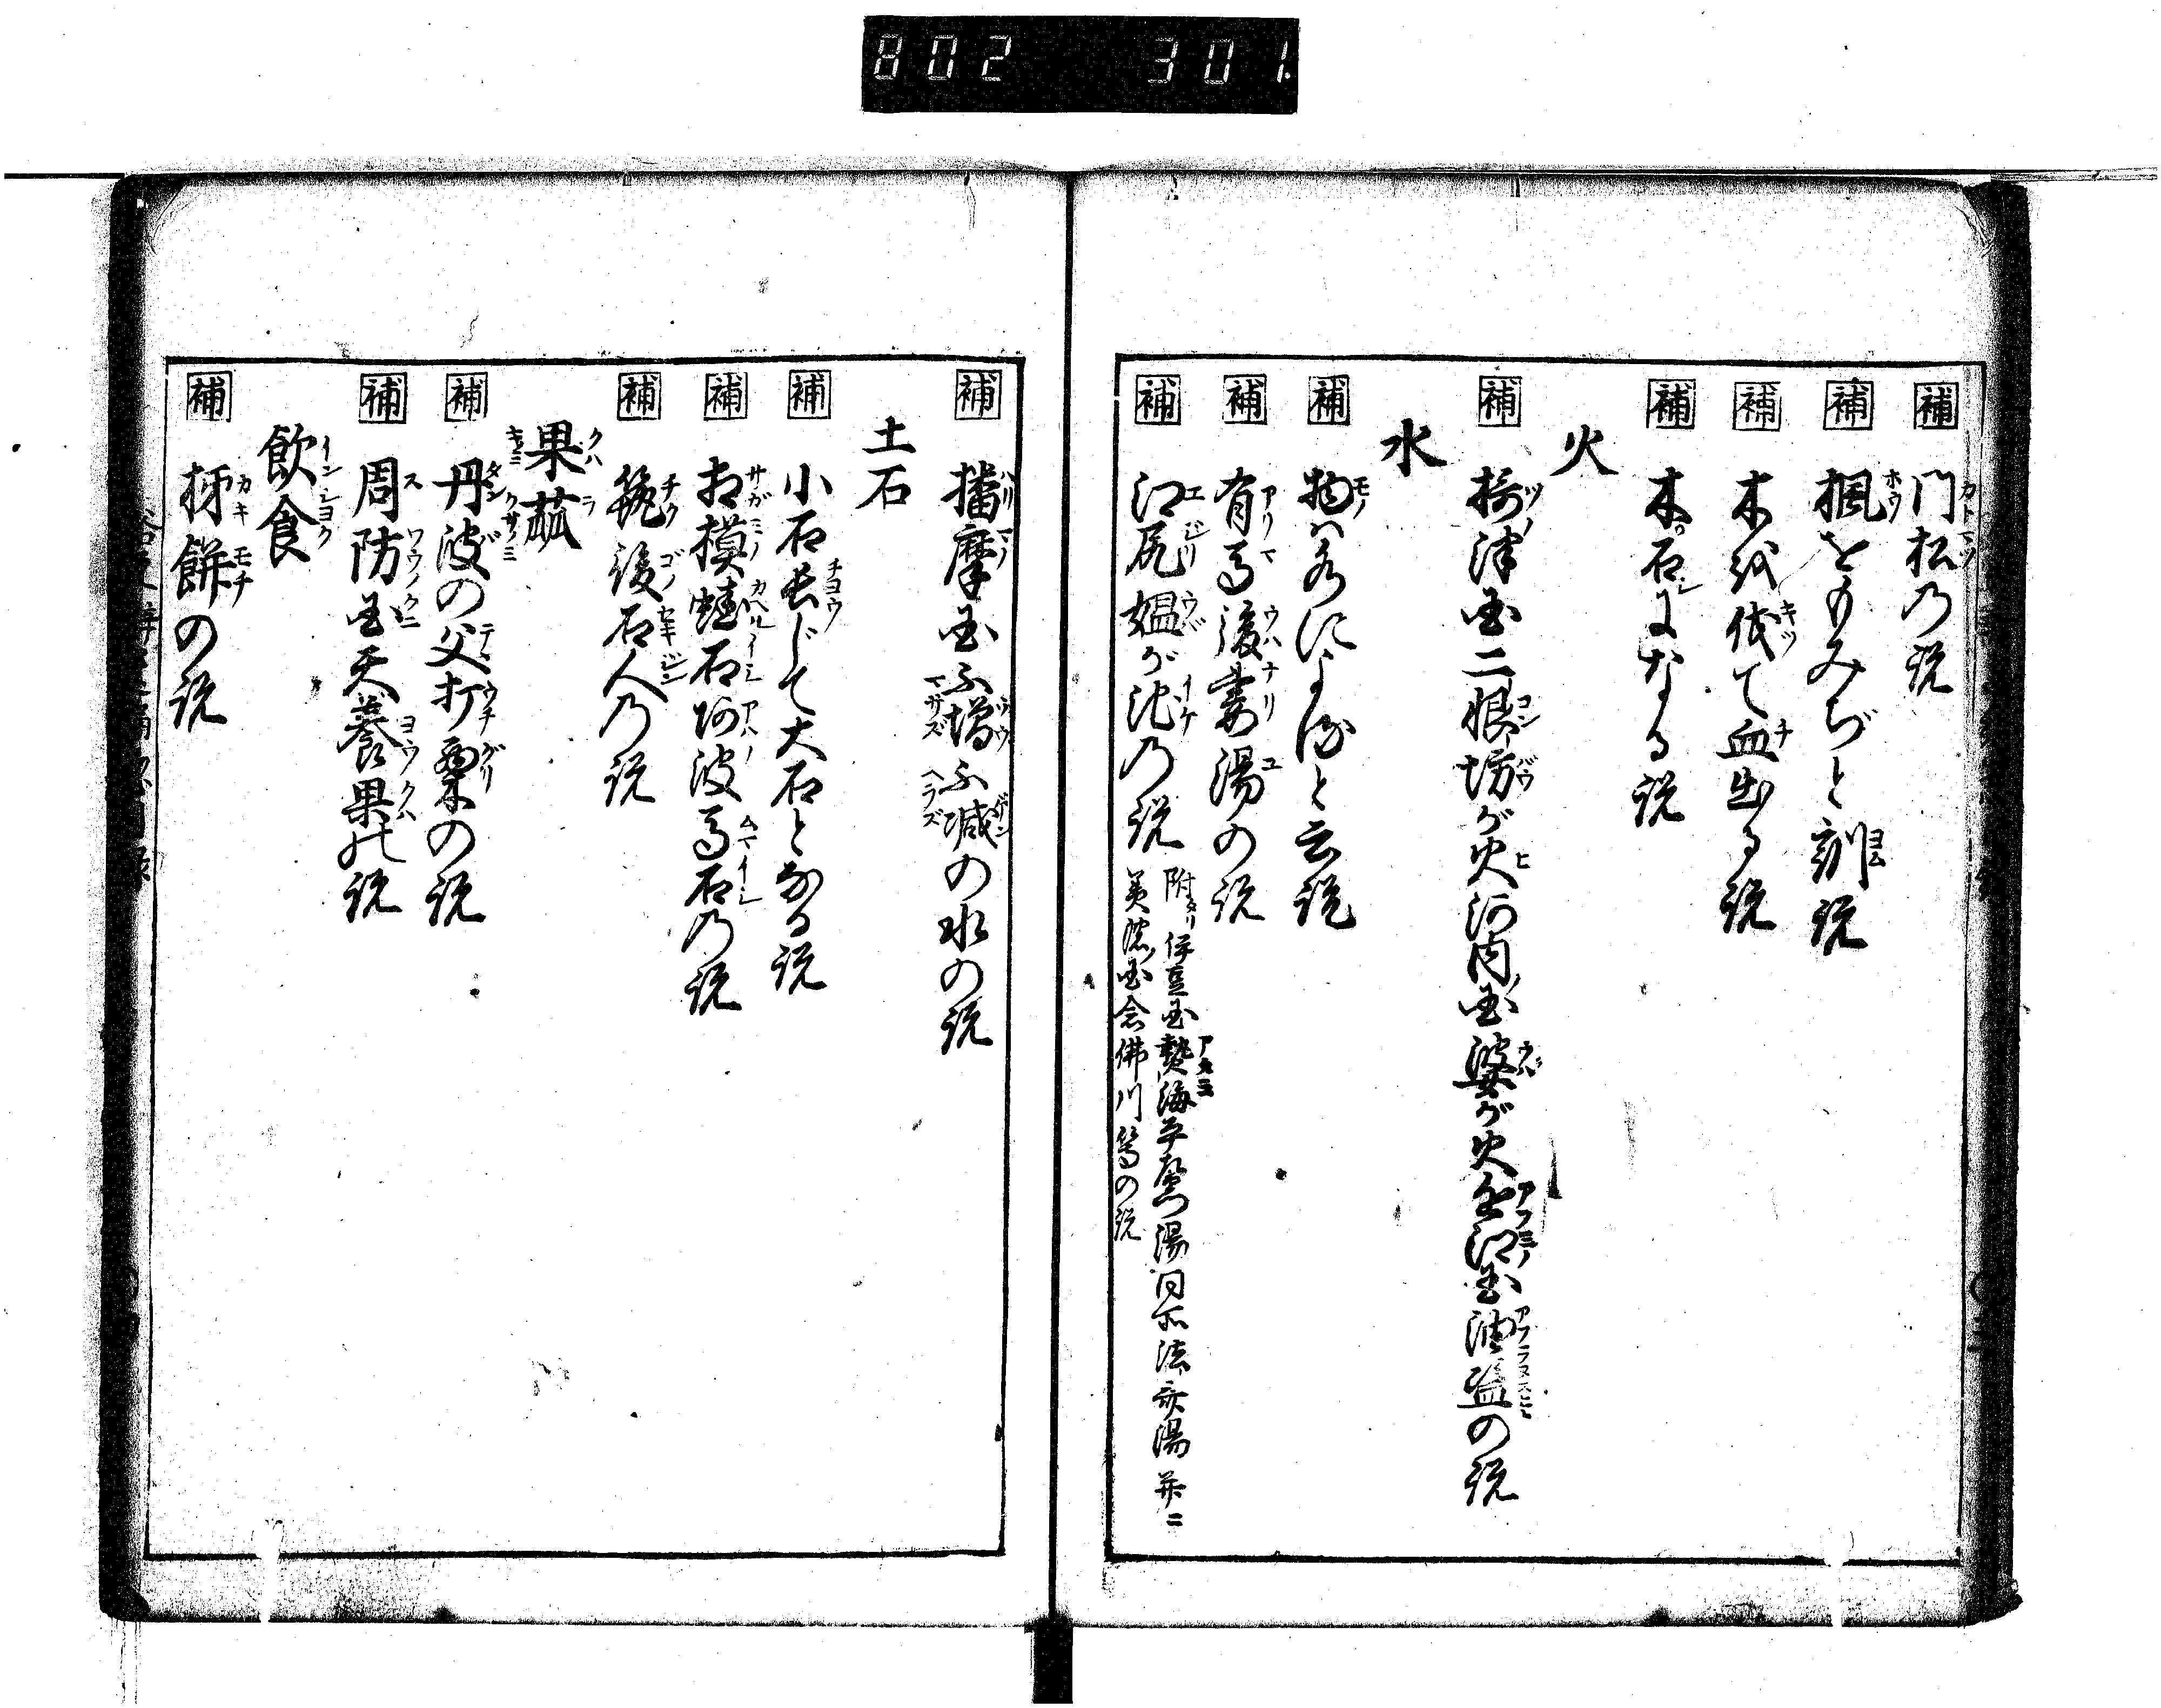 802 301
補 門松乃説
補 楓をもみぢと訓説
補 木を伐て血出る説
補 木石になる説
火
補 摂津国二恨坊が火河内国婆が火近江国油盗の説
水
補 物は水によると云説
補 有馬後妻湯の説
補 江尻媼が池乃説
附タリ伊豆国熱海平左衛門湯同所法斎湯并ニ
美濃国念佛川等の説
補 播摩国不増不減の水の説
土石
補 小石長じて大石となる説
補 相模蛙石阿波馬石乃説
補 筑後石人乃説
果蓏
補 丹波の父打栗の説
補 周防国天養果の説
飲食
補 柹餅の説